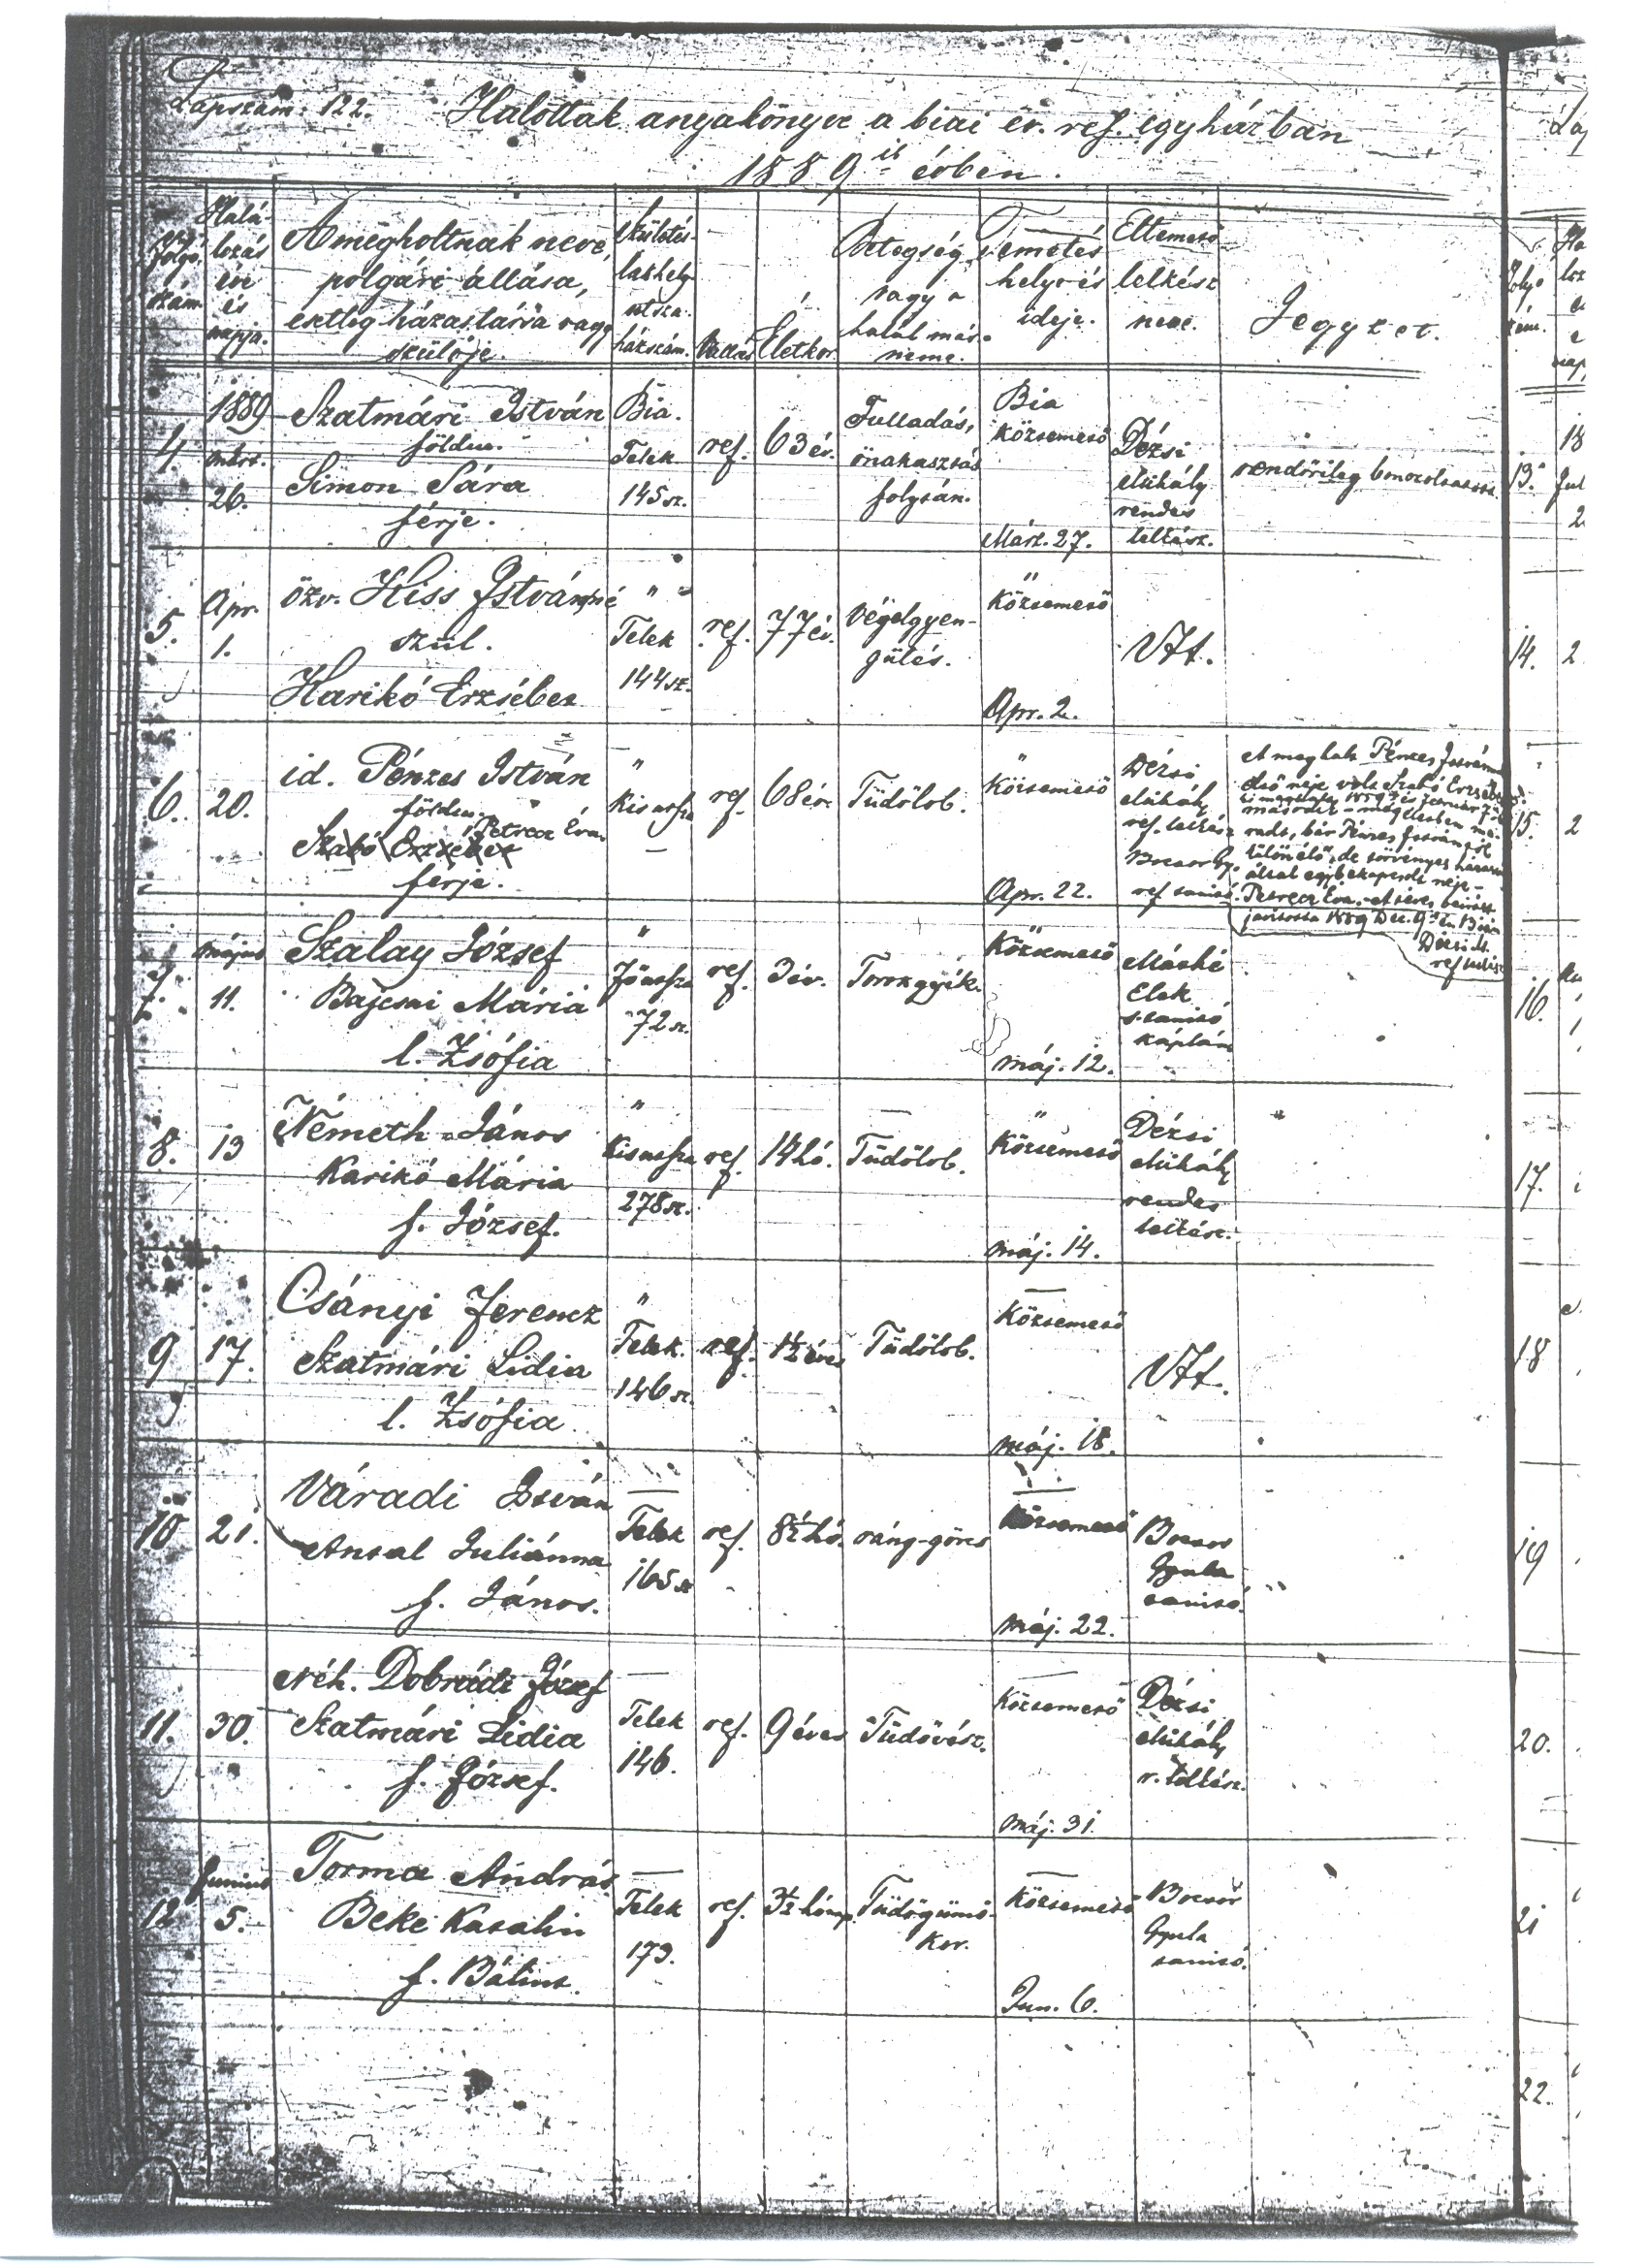 Lapszám: 122.
Halottak anyakönyve a biai ev. ref. egyházban
1889ik évben.
Folyó szám
Halálozás éve és napja.
A megholtnak neve,
polgári állása,
esetleg házastársa vagy
szülője.
Születés-
lakhely
utsza
házszám.
Vallás
Életkor
Betegség
vagy a
halál más
neme.
Temetés
helye és
ideje.
Eltemető
lelkész
neve.
Jegyzet.
4. 1889 márt. 26.
Szatmári István
földm.
Simon Sára
férje.
Bia.
Telek
145 sz.
ref.
63 év.
Fulladás,
önakasztás
folytán.
Bia
Köztemető
Márt. 27.
Dézsi
Mihály
rendes
lelkész.
rendőrileg
5. Apr. 1.
özv. Kiss Istvánné
szül.
Karikó Erzsébet
" "
Telek
144 sz.
ref.
77 év.
Végelgyen-
gülés.
"
Köztemető
Apr. 2.
Utt.
6. 20.
id. Pénzes István
földm.
Petrecz Éva
Szabó Erzsébet
férje.
"
Kis utsza
ref.
68 év.
Tüdőlob.
"
Köztemető
Apr. 22.
Dézsi
Mihály
ref. lelkész
Bocsor Gy.
ref. tanitó.
A meghalt Pénzes Istvánnak
első neje volt Szabó Erzsébet
Pénzes István
különélő, de törvényes házasság
által egybekapcsolt neje -
Petrecz Éva. - A téves beirást
javitotta 1889 Dec. 9én Bián
Dézsi M.
ref lelkész
7. május 11.
Szalay József
Bajcsai Mária
l. Zsófia
"
Fő utsza
72 sz.
ref.
3 év.
Torokgyik.
"
Köztemető
máj. 12.
Máthé
Elek
s. tanitó
káplán
8. 13
Németh János
Karikó Mária
f. József.
"
Kis utsza
278 sz.
ref.
14 hó.
Tüdőlob.
"
Köztemető
máj. 14.
Dézsi
Mihály
rendes
lelkész.
9 17.
Csányi Ferencz
Szatmári Lidia
l. Zsófia
"
Telek.
146 sz.
ref.
1½ éves
Tüdőlob.
Köztemető
máj. 18.
Utt.
10 21.
Váradi István
Antal Juliánna
f. János.
Telek
165 sz
ref.
8½ hó.
ráng-görcs
Köztemető
máj. 22.
Bocsor
Gyula
tanitó.
11. 30.
Néh. Dobrádi József
Szatmári Lidia
f. József.
Telek
146.
ref.
9 éves
Tüdővész.
Köztemető
máj. 31.
Dézsi
Mihály
r. lelkész.
12 Junius 5.
Torma András
Beke Katalin
f. Bálint.
Telek
173.
ref.
3½ hónap.
Tüdőgümő-
kór.
Köztemető
Jun. 6.
Bocsor
Gyula
tanitó.
13.
14.
15.
16.
17.
18
19
20.
21
22.